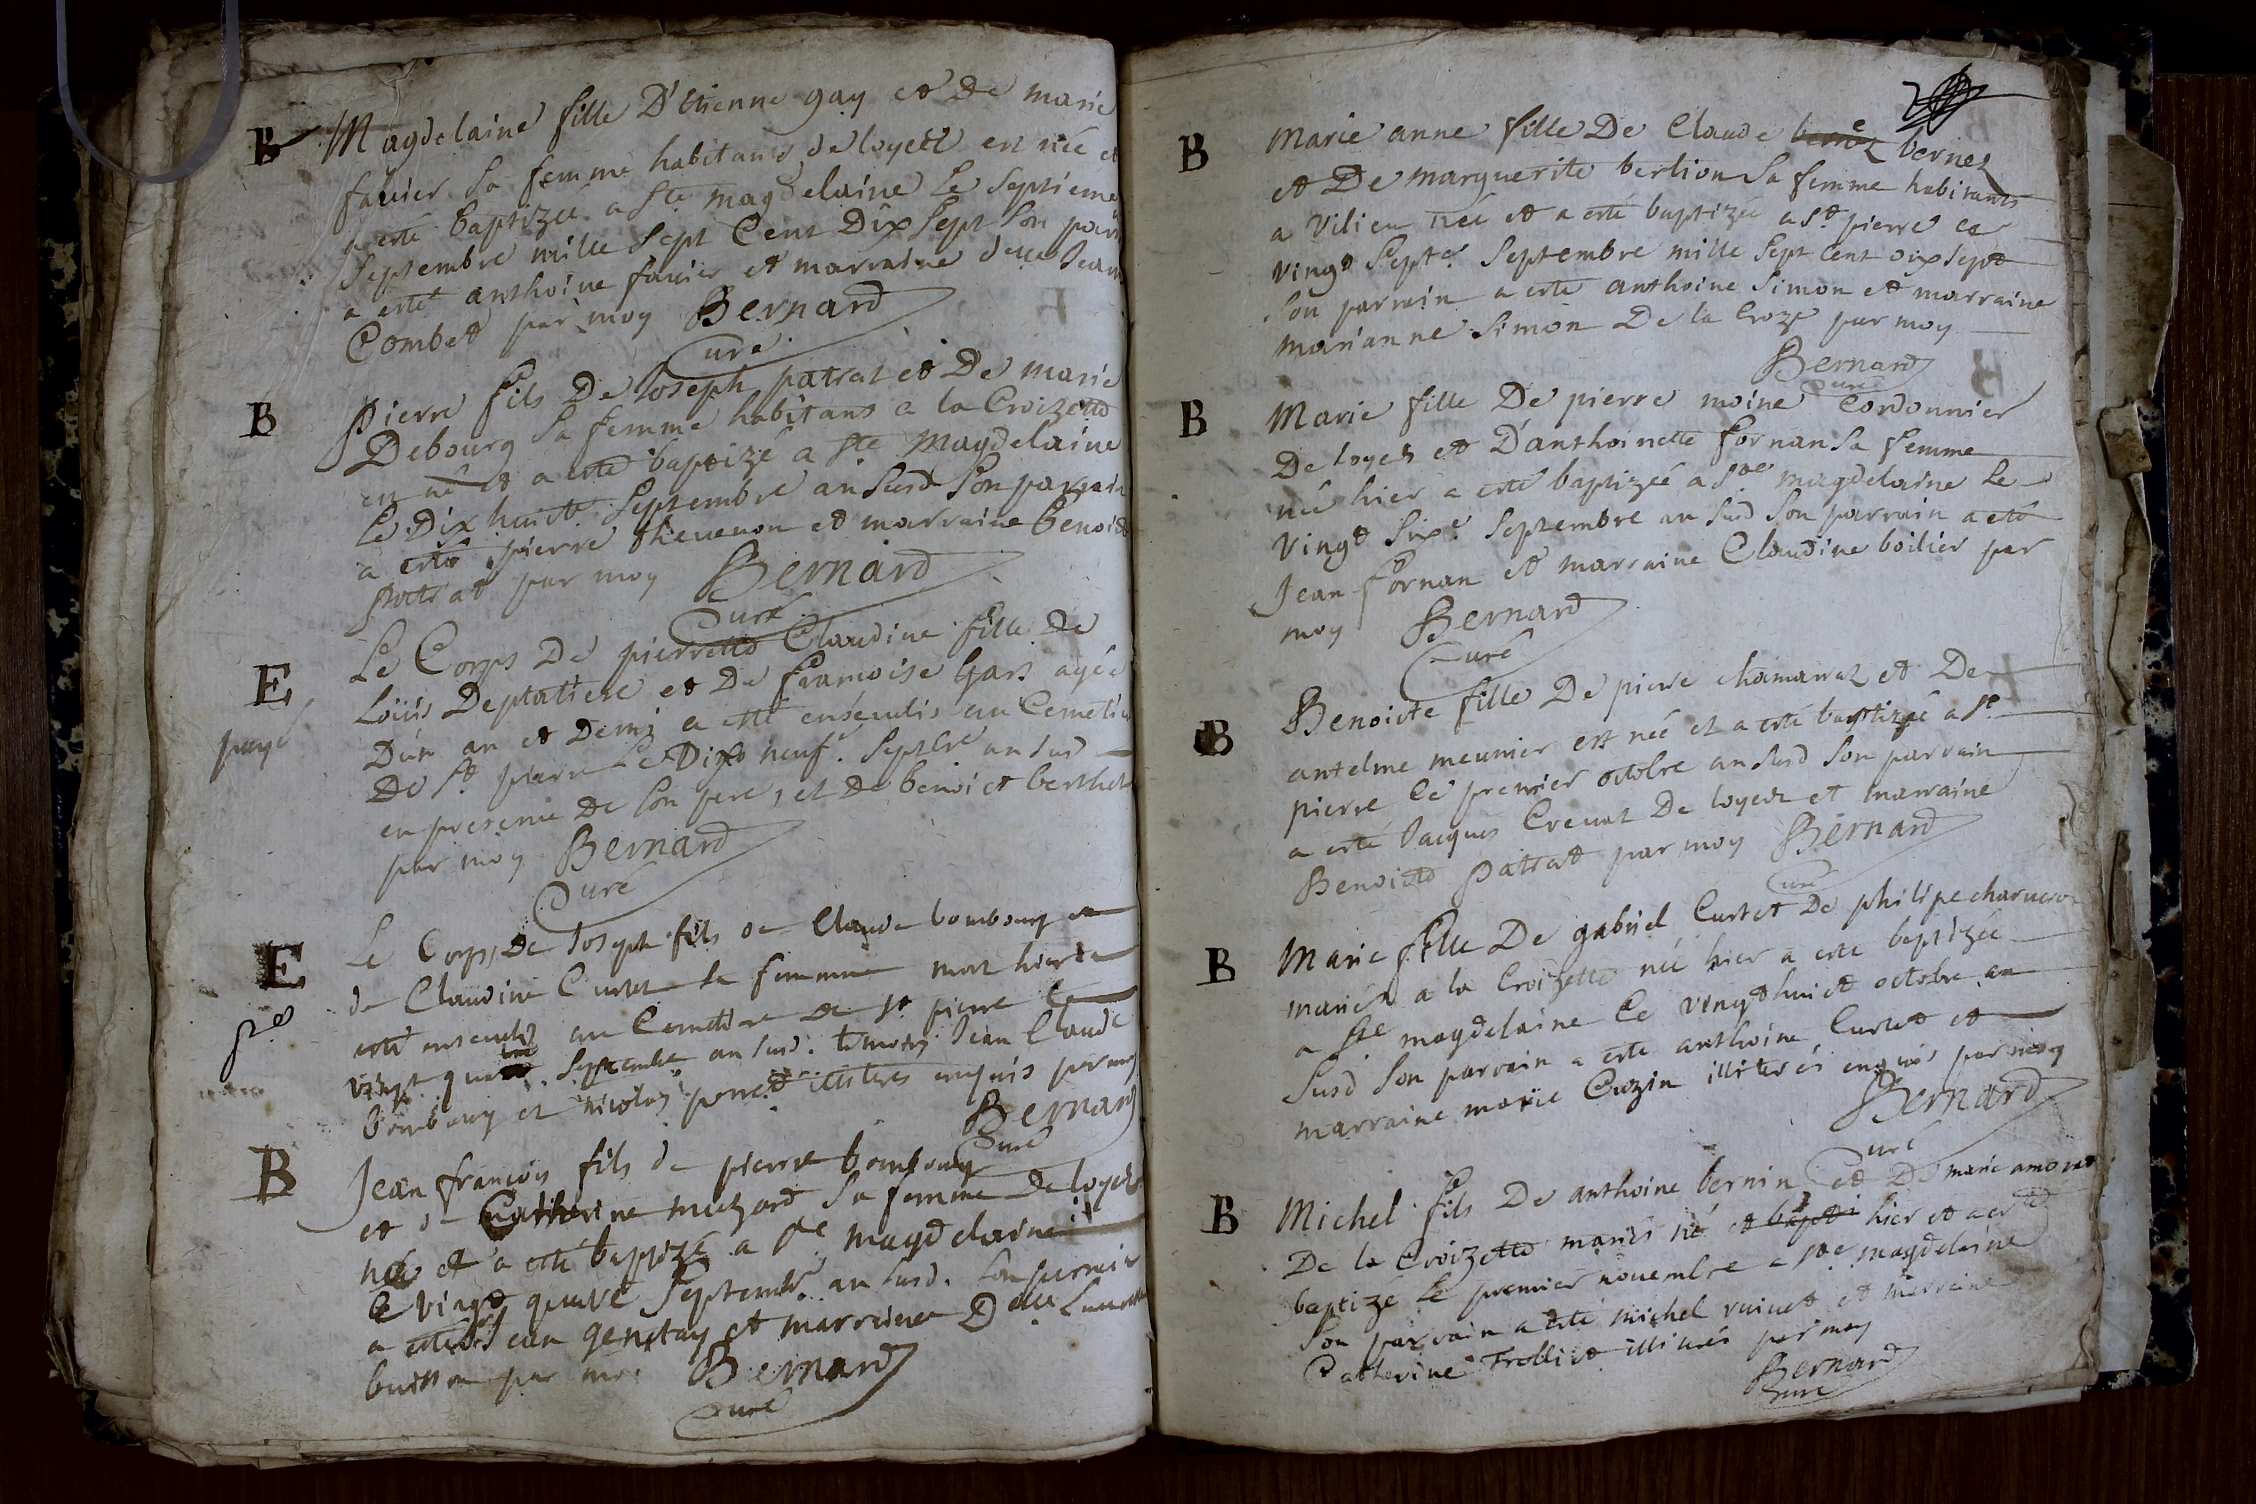 B Magdelaine fille D'Etienne gay et De marie
fauier sa femme habitans de loyett est née et
a esté baptizée a Ste magdelaine Le septieme
septembre mille sept Cent Dix sept son parrain
a esté anthoine fauier et marraine delle Jeanne
Combet par moy Bernard
Curé
B Pierre fils De Joseph patrat et De marie
Debourg sa femme habitans a la Croizette
est né et a esté baptizé a Ste Magdelaine
Le Dix huict septembre an susd son parrain
a esté pierre theuenon et marraine benoiste
patrat par moy Bernard
Curé
E Le Corps De pierrette Claudine fille De
payé Loüis Deplatiere et De francoise Gars agée
D'un an et Demi a esté enseuelis au Cemetiere
De St pierre Le Dix neuf.e septbre an susd
en presence De son pere, et De benoict berthet
par moy Bernard
Curé
E Le Corps De Joseph fils De Claude bombourg et
de Claudine Curtet sa femme mort hier a
esté enseueli au Cemetiere De St pierre le
vingt septembre an susd. temoins Jean Claude
bombourg et nicolas ponet illiteres enquis par moy
Bernard
Curé
B Jean francois fils de pierre bombourg
et de Catherine muzard sa femme De loyett
né et a esté baptizé a Ste magdelaine
Le vingt quatre septembre an susd. son parrain
a esté Jean genetay et marraine Delle
buisson par moi Bernard
Curé
B Marie anne fille De Claude bernet bernet
et De marguerite berlion sa femme habitants
a vilieu née et a esté baptizée a St pierre ce
vingt septe septembre mille sept Cent dix sept
son parrain a esté anthoine Simon et marraine
marianne Simon De la Croze par moy
Bernard
Curé
B Marie fille De pierre moine Cordonnier
De loyett et D'anthoinette fornan sa femme
née hier a esté baptizée a Ste magdelaine Le
vingt sixe septembre an susd son parrain a esté
Jean fornan et marraine Claudine boilier par
moy Bernard
Curé
B Benoicte fille De pierre chamarat et De
antelme meunier est née et a esté baptizée a St
pierre le premier octobre an susd son parrain
a esté Jacques Creuat De loyett et marraine
Benoicte Patrat par moy Bernard
Curé
B Marie fille De gabriel Curtet De philipe
mariés a la Croizette née hier a esté baptizée
a Ste magdelaine Le vingt huict octobre an
susd son parrain a esté anthoine Curtet et
marraine marie Cuzin illiterés enquis par moy
Bernard
Curé
B Michel fils De anthoine bernin et De marie amoret
De la Croizette mariés né et bapti hier et a esté
baptizé le premier nouembre a Ste magdelaine
son parrain a esté michel et marraine
Catherine Trolliet illiterés par moy
Bernard
Curé